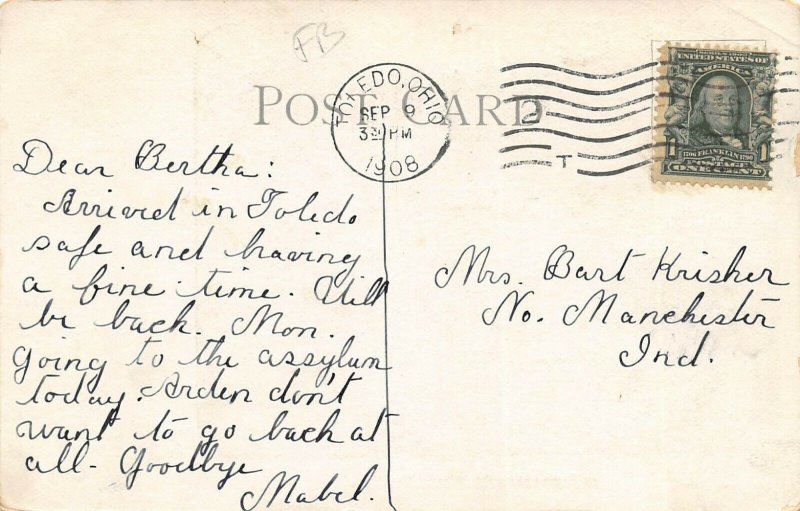 FB
POST CARD
TOLEDO, OHIO
SEP 9
3 30 PM
1908
2
T
UNITED STATES OF
AMERICA
1706 FRANKLIN 1790
POSTAGE
1 1
ONE CENT
Dear Bertha:
Arrived in Toledo
safe and having
a fine time. Will
be back. Mon.
Going to the assylum
today. Arden don't
want to go back at
all - Goodbye
Mabel.
Mrs. Bart Krisher
No. Manchester
Ind.